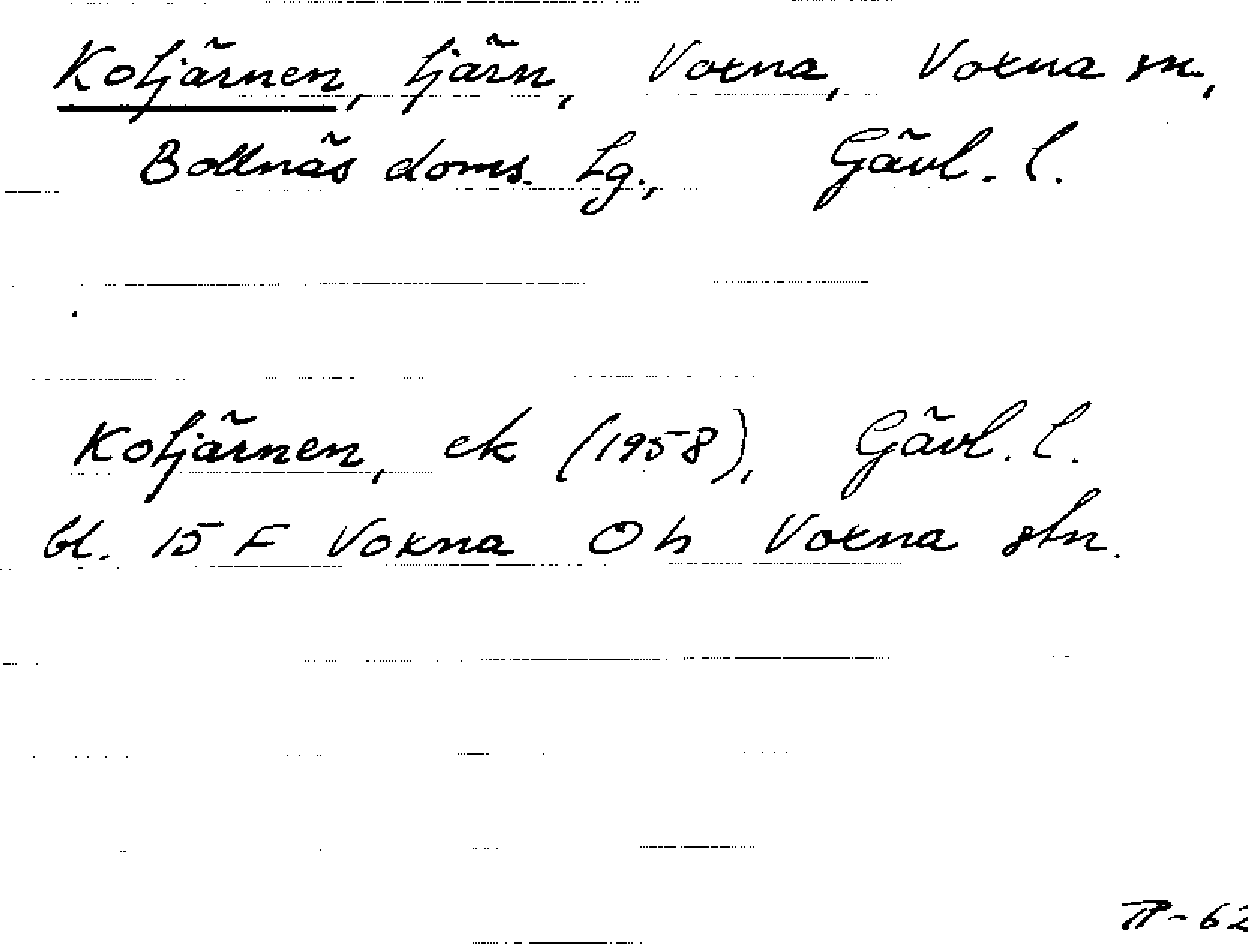 Kotjärnen, tjärn, Voxna, Voxna sn,
Bollnäs doms. Lg., Gävl. l.
Kotjärnen, ek (1958), Gävl. l.
bl. 15 F Voxna Oh Voxna stn.
TP-62